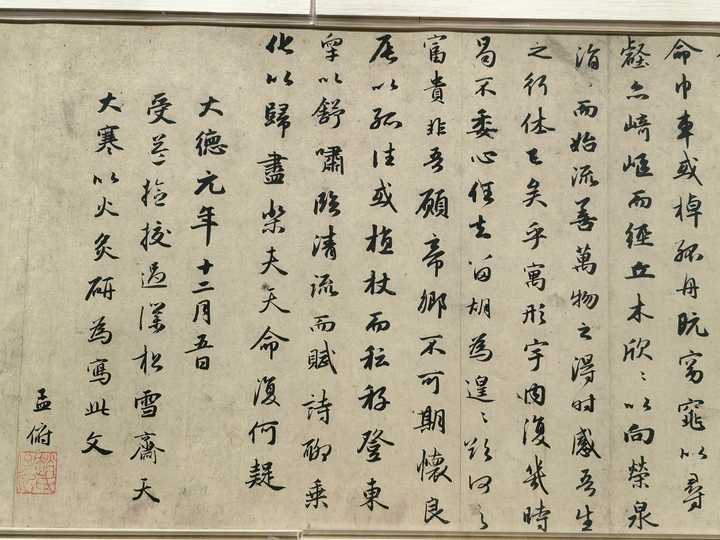 命巾車或棹孤舟既窈窕以尋
壑亦崎嶇而經丘木欣〻以向榮泉
涓〻而始流善萬物之得時感吾生
之行休已矣乎寓形宇內復幾時
曷不委心任去留胡為遑〻欲何之
富貴非吾願帝鄉不可期懷良
辰以孤往或植杖而耘耔登東
皋以舒嘯臨清流而賦詩聊乘
化以歸盡樂夫天命復何疑
大德元年十二月五日
受益撿挍過僕松雪齋天
大寒以火炙研為寫此文
孟俯